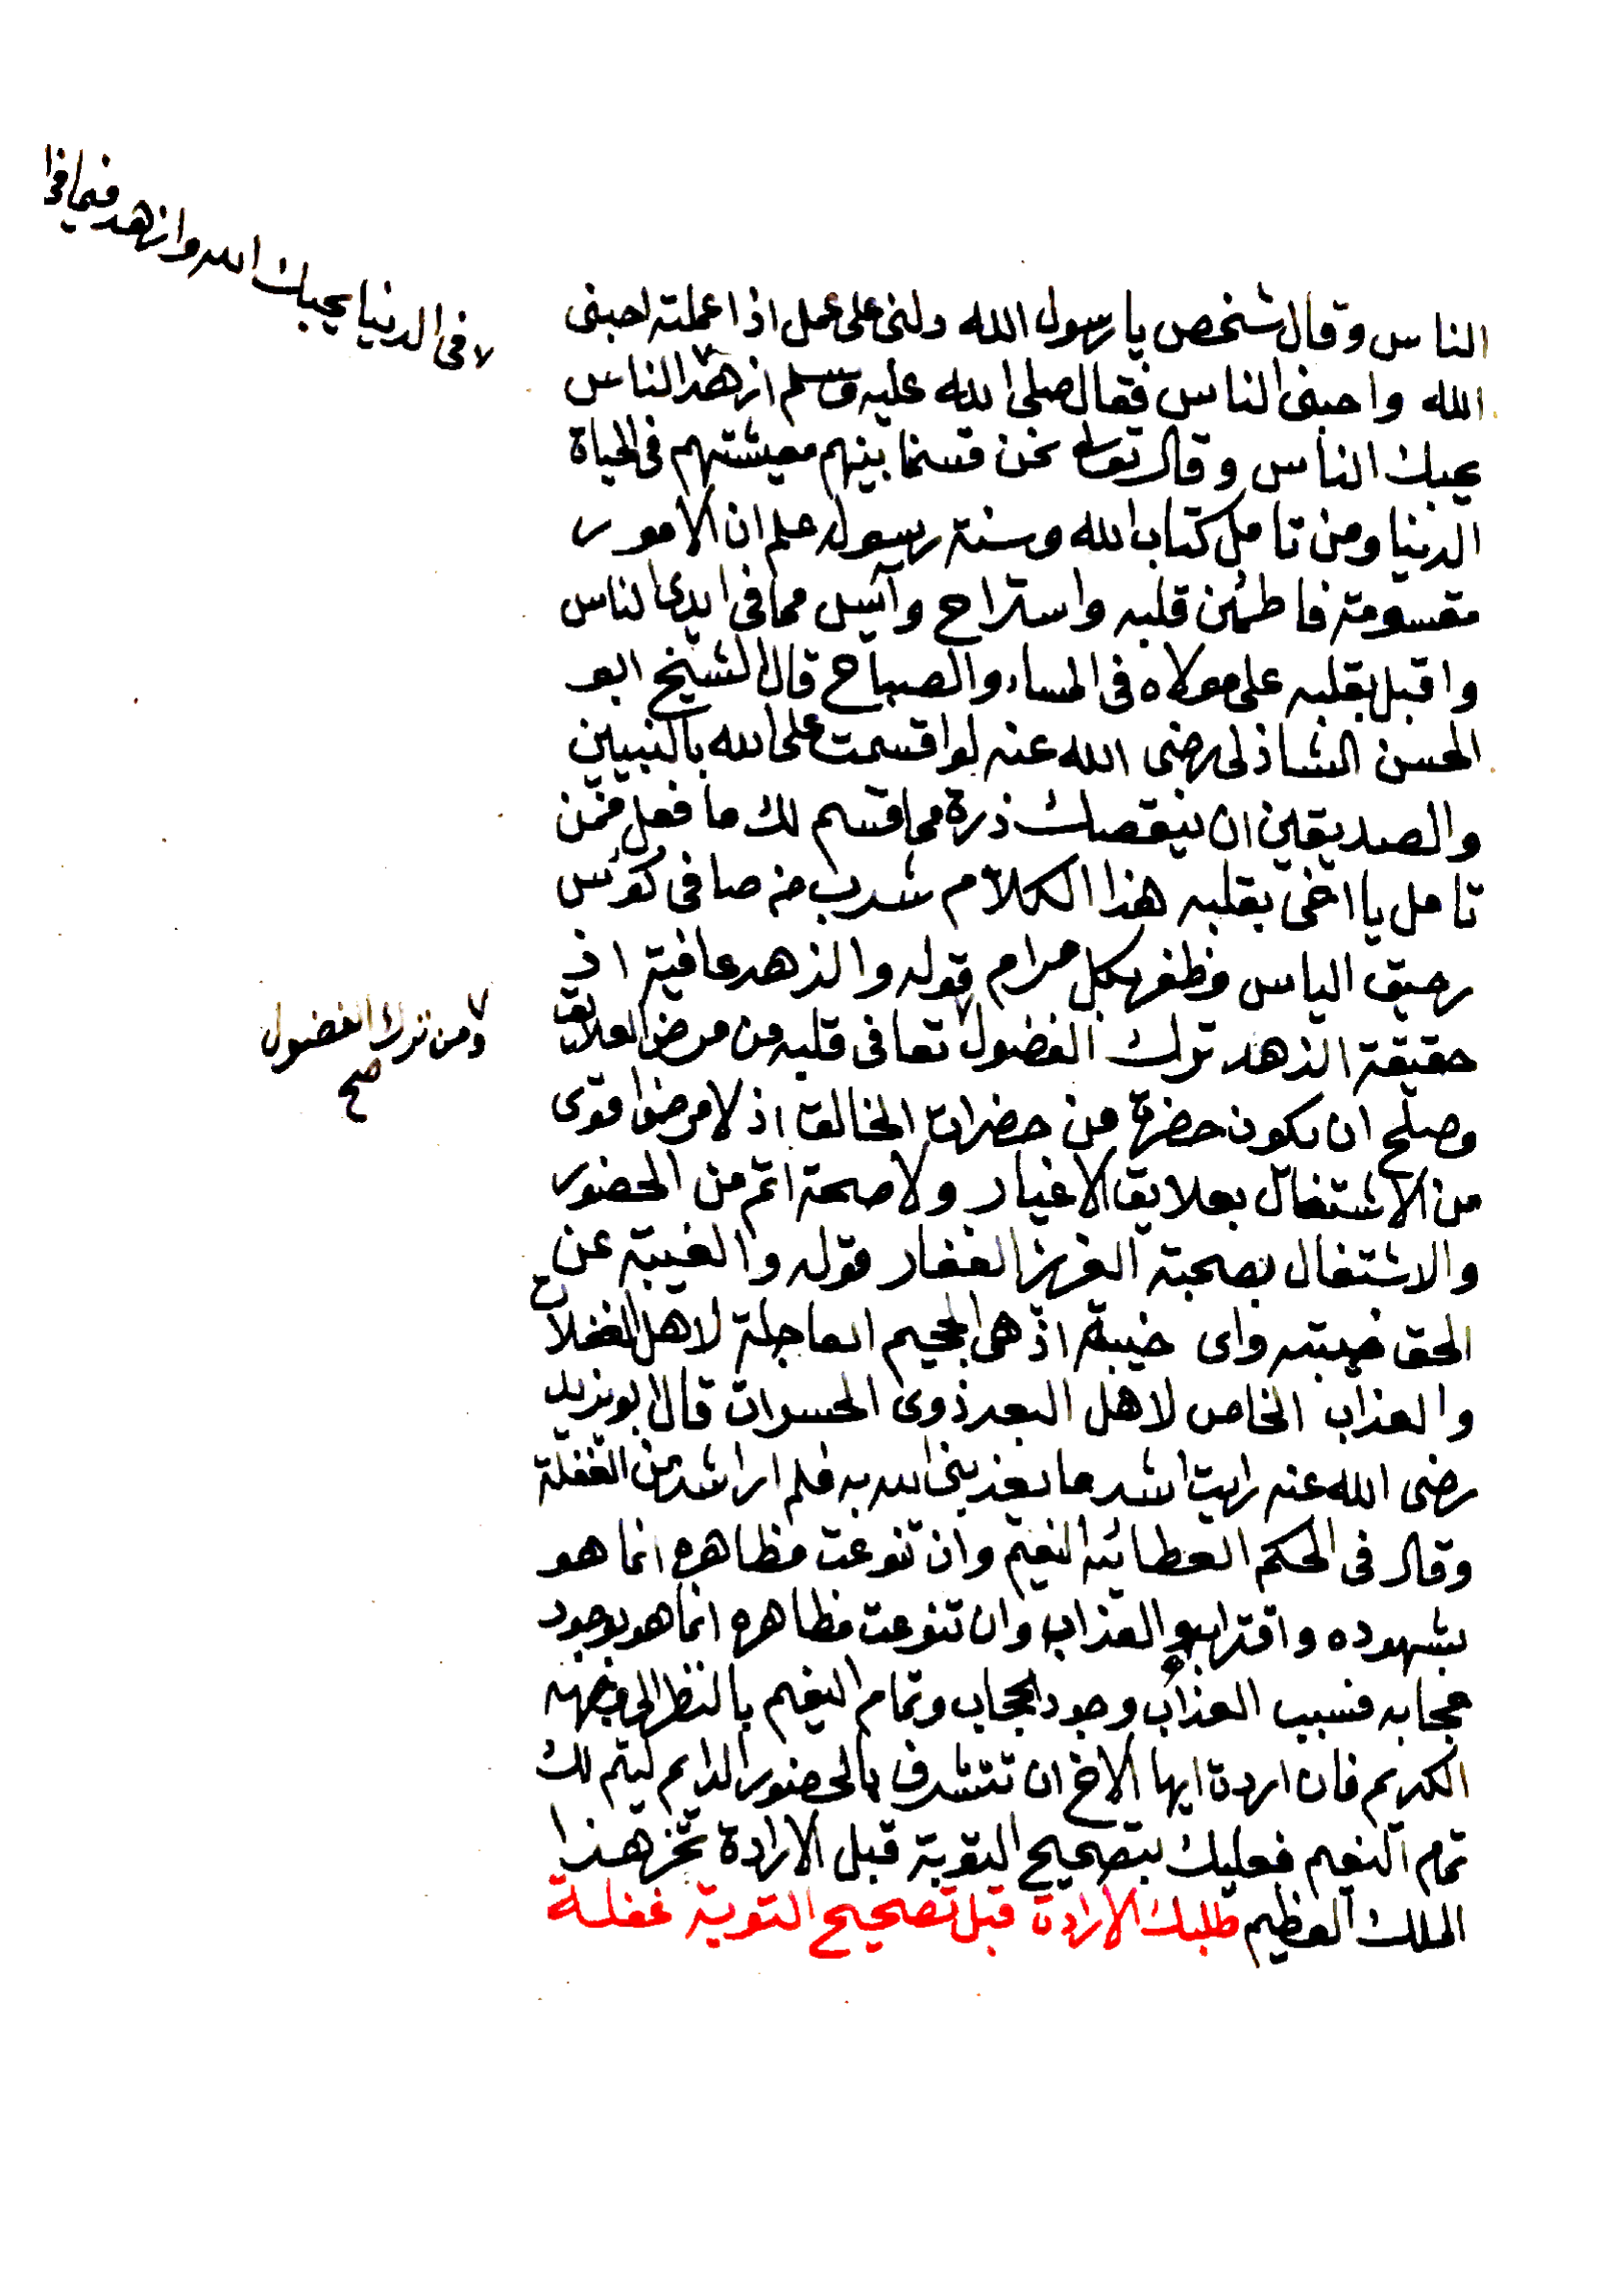 الناس وقال شخص يا رسول الله دلنى على عمل اذا عملته احبنى
الله واحبنى الناس فقال صلى الله عليه وسلم ازهد الناس
فى الدنيا يحبك الله وازهد فيما فى ا
يحبك الناس وقال تعالى نحن قسمنا بينهم معيشتهم فى الحياة
الدنيا ومن تامل كتاب الله وسنة رسوله علم ان الامور
مقسومة فاطمئن قلبه واستراح وآيس مما فى ايدى الناس
واقبل بقلبه على مولاه فى المساء والصباح قال الشيخ ابو
الحسن الشاذلى رضى الله عنه لو اقسمت على الله بالنبيين
والصديقين ان ينقصك ذرة مما قسم لك ما فعل فمن
تامل يا اخى بقلبه هذا الكلام شرب من صافى كؤس
رحيق الياس وظفر بكل مرام قوله والزهد عافية اذ
حقيقة الزهد ترك الفضول تعافى قلبه من مرض العلايق
ومن ترك الفضول
صح
وصلح ان يكون حضرة من حضرات الخالق اذ لا مرض اقوى
من الاشتغال بعلايق الاغيار ولا صحة اتم من الحضور
والاشتغال بصحبة العزيز الغفار قوله والغيبة عن
الحق خيبته واى خيبة اذ هى الجحيم العاجلة لاهل الغفلات
والعذاب الخاص لاهل البعد ذوى الحسرات قال ابو يزيد
رضى الله عنه رايت اشد ما يعذبنى الله به فلم ار اشد من الغفلة
وقال فى الحكم العطائيه النعيم وان تنوعت مظاهره انما هو
بشهوده واقترابه والعذاب وان تنوعت مظاهره انما هو بوجود
حجابه فسبب العذاب وجود الحجاب وتمام النعيم بالنظر الى وجهه
الكريم فان اردة ايها الاخ ان تتشرف بالحضور الدايم ليتم لك
تمام النعيم فعليك بتصحيح التوبة قبل الارادة تحز هذا
الملك العظيم طلبك الارادة قبل تصحيح التوبة غفلة